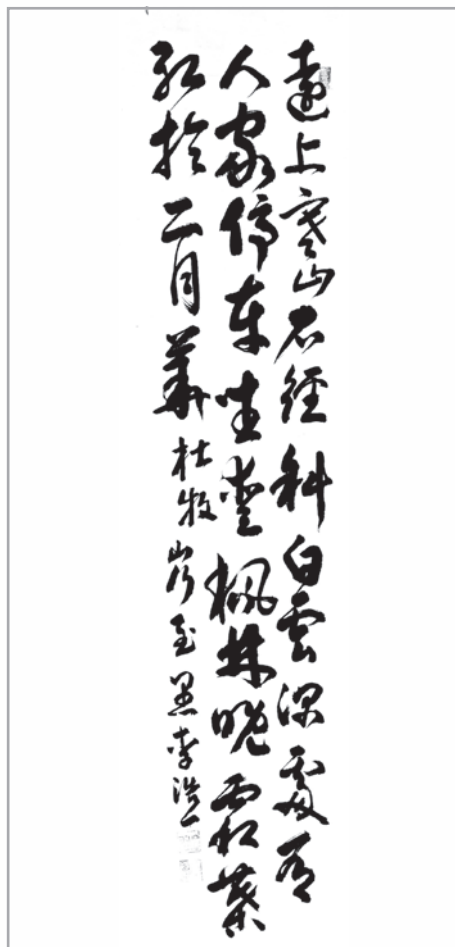 遠上寒山石徑斜白雲深處有
人家停車坐愛楓林晚霜葉
紅於二月華 杜牧山行 李浩一